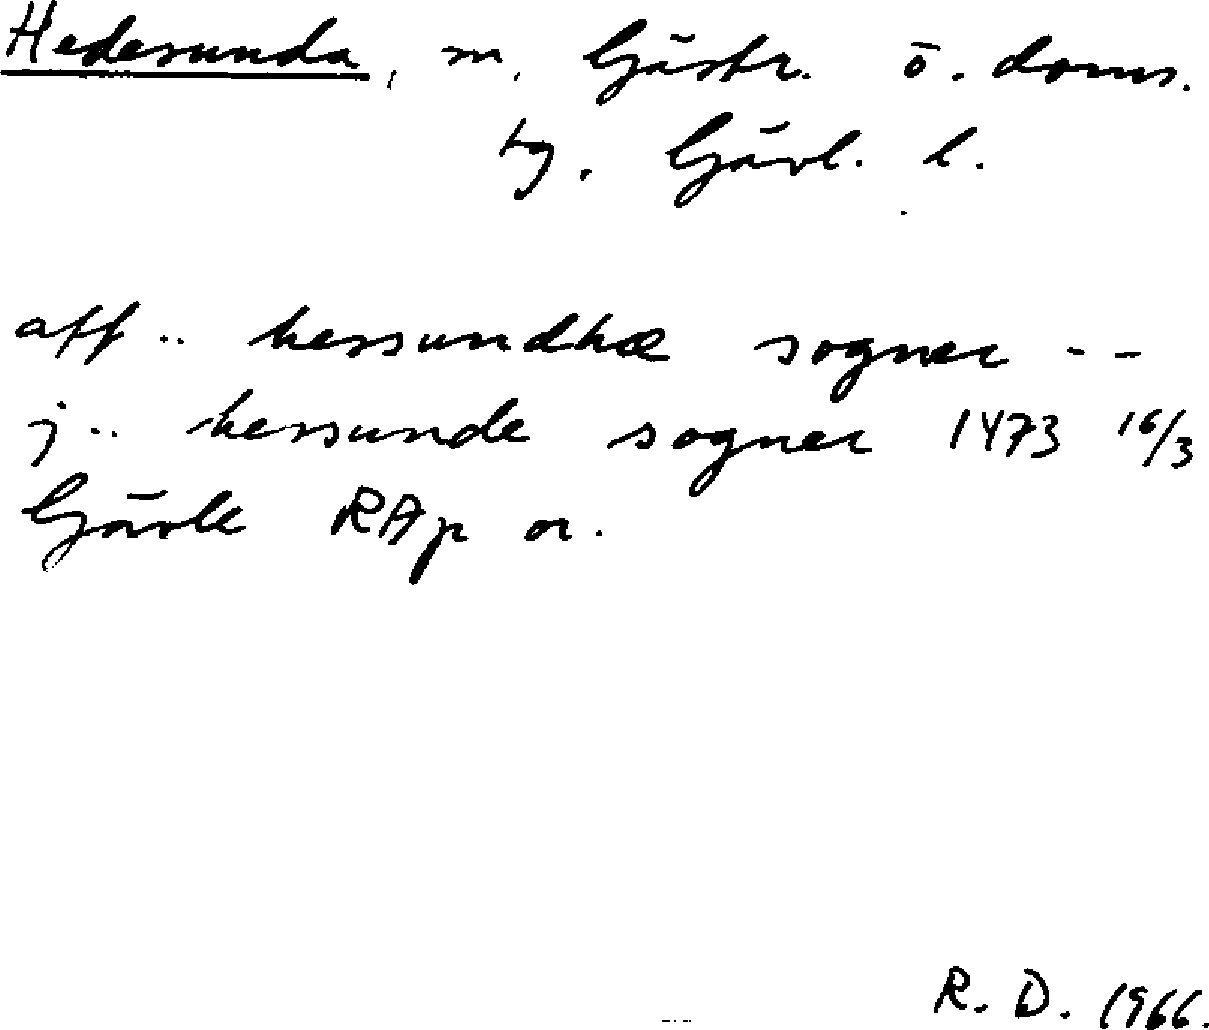 Hedesunda, sn, Gästr. ö. doms.
tg. Gävl. l.
aff .. hessundhæ sogner --
j .. hessunde sogner 1473 16/3
Gävle RAp or.
R. D. 1966.